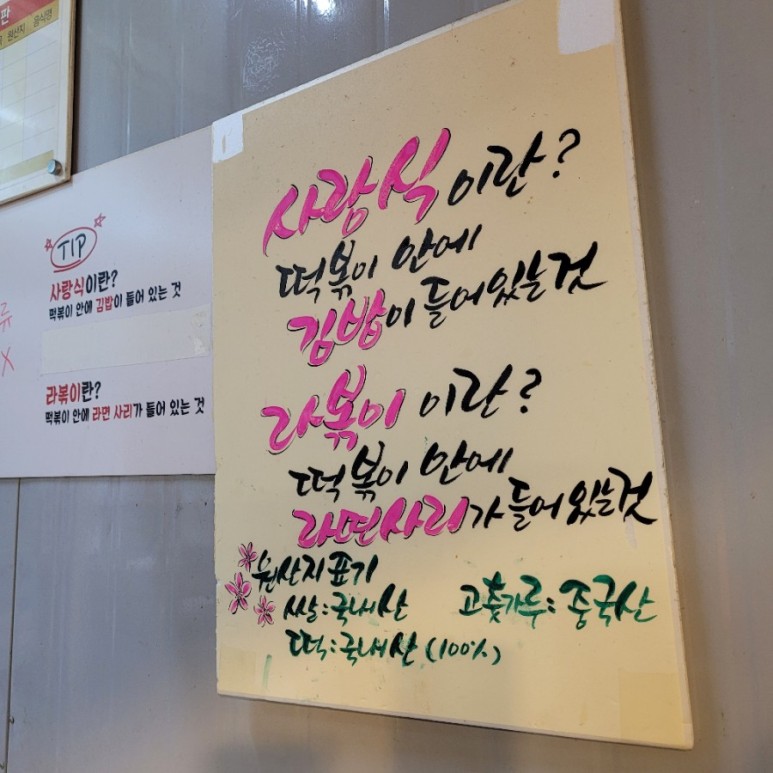 판
원산지 음식명
TIP
사랑식이란?
떡볶이 안에 김밥이 들어 있는 것
류
X
라볶이란?
떡볶이 안에 라면 사리가 들어 있는 것
사랑식이란?
떡볶이 안에
김밥이 들어있는것
라볶이 이란?
떡볶이 안에
라면사리가 들어있는것
원산지표기
쌀:국내산 고춧가루:중국산
떡:국내산(100%)